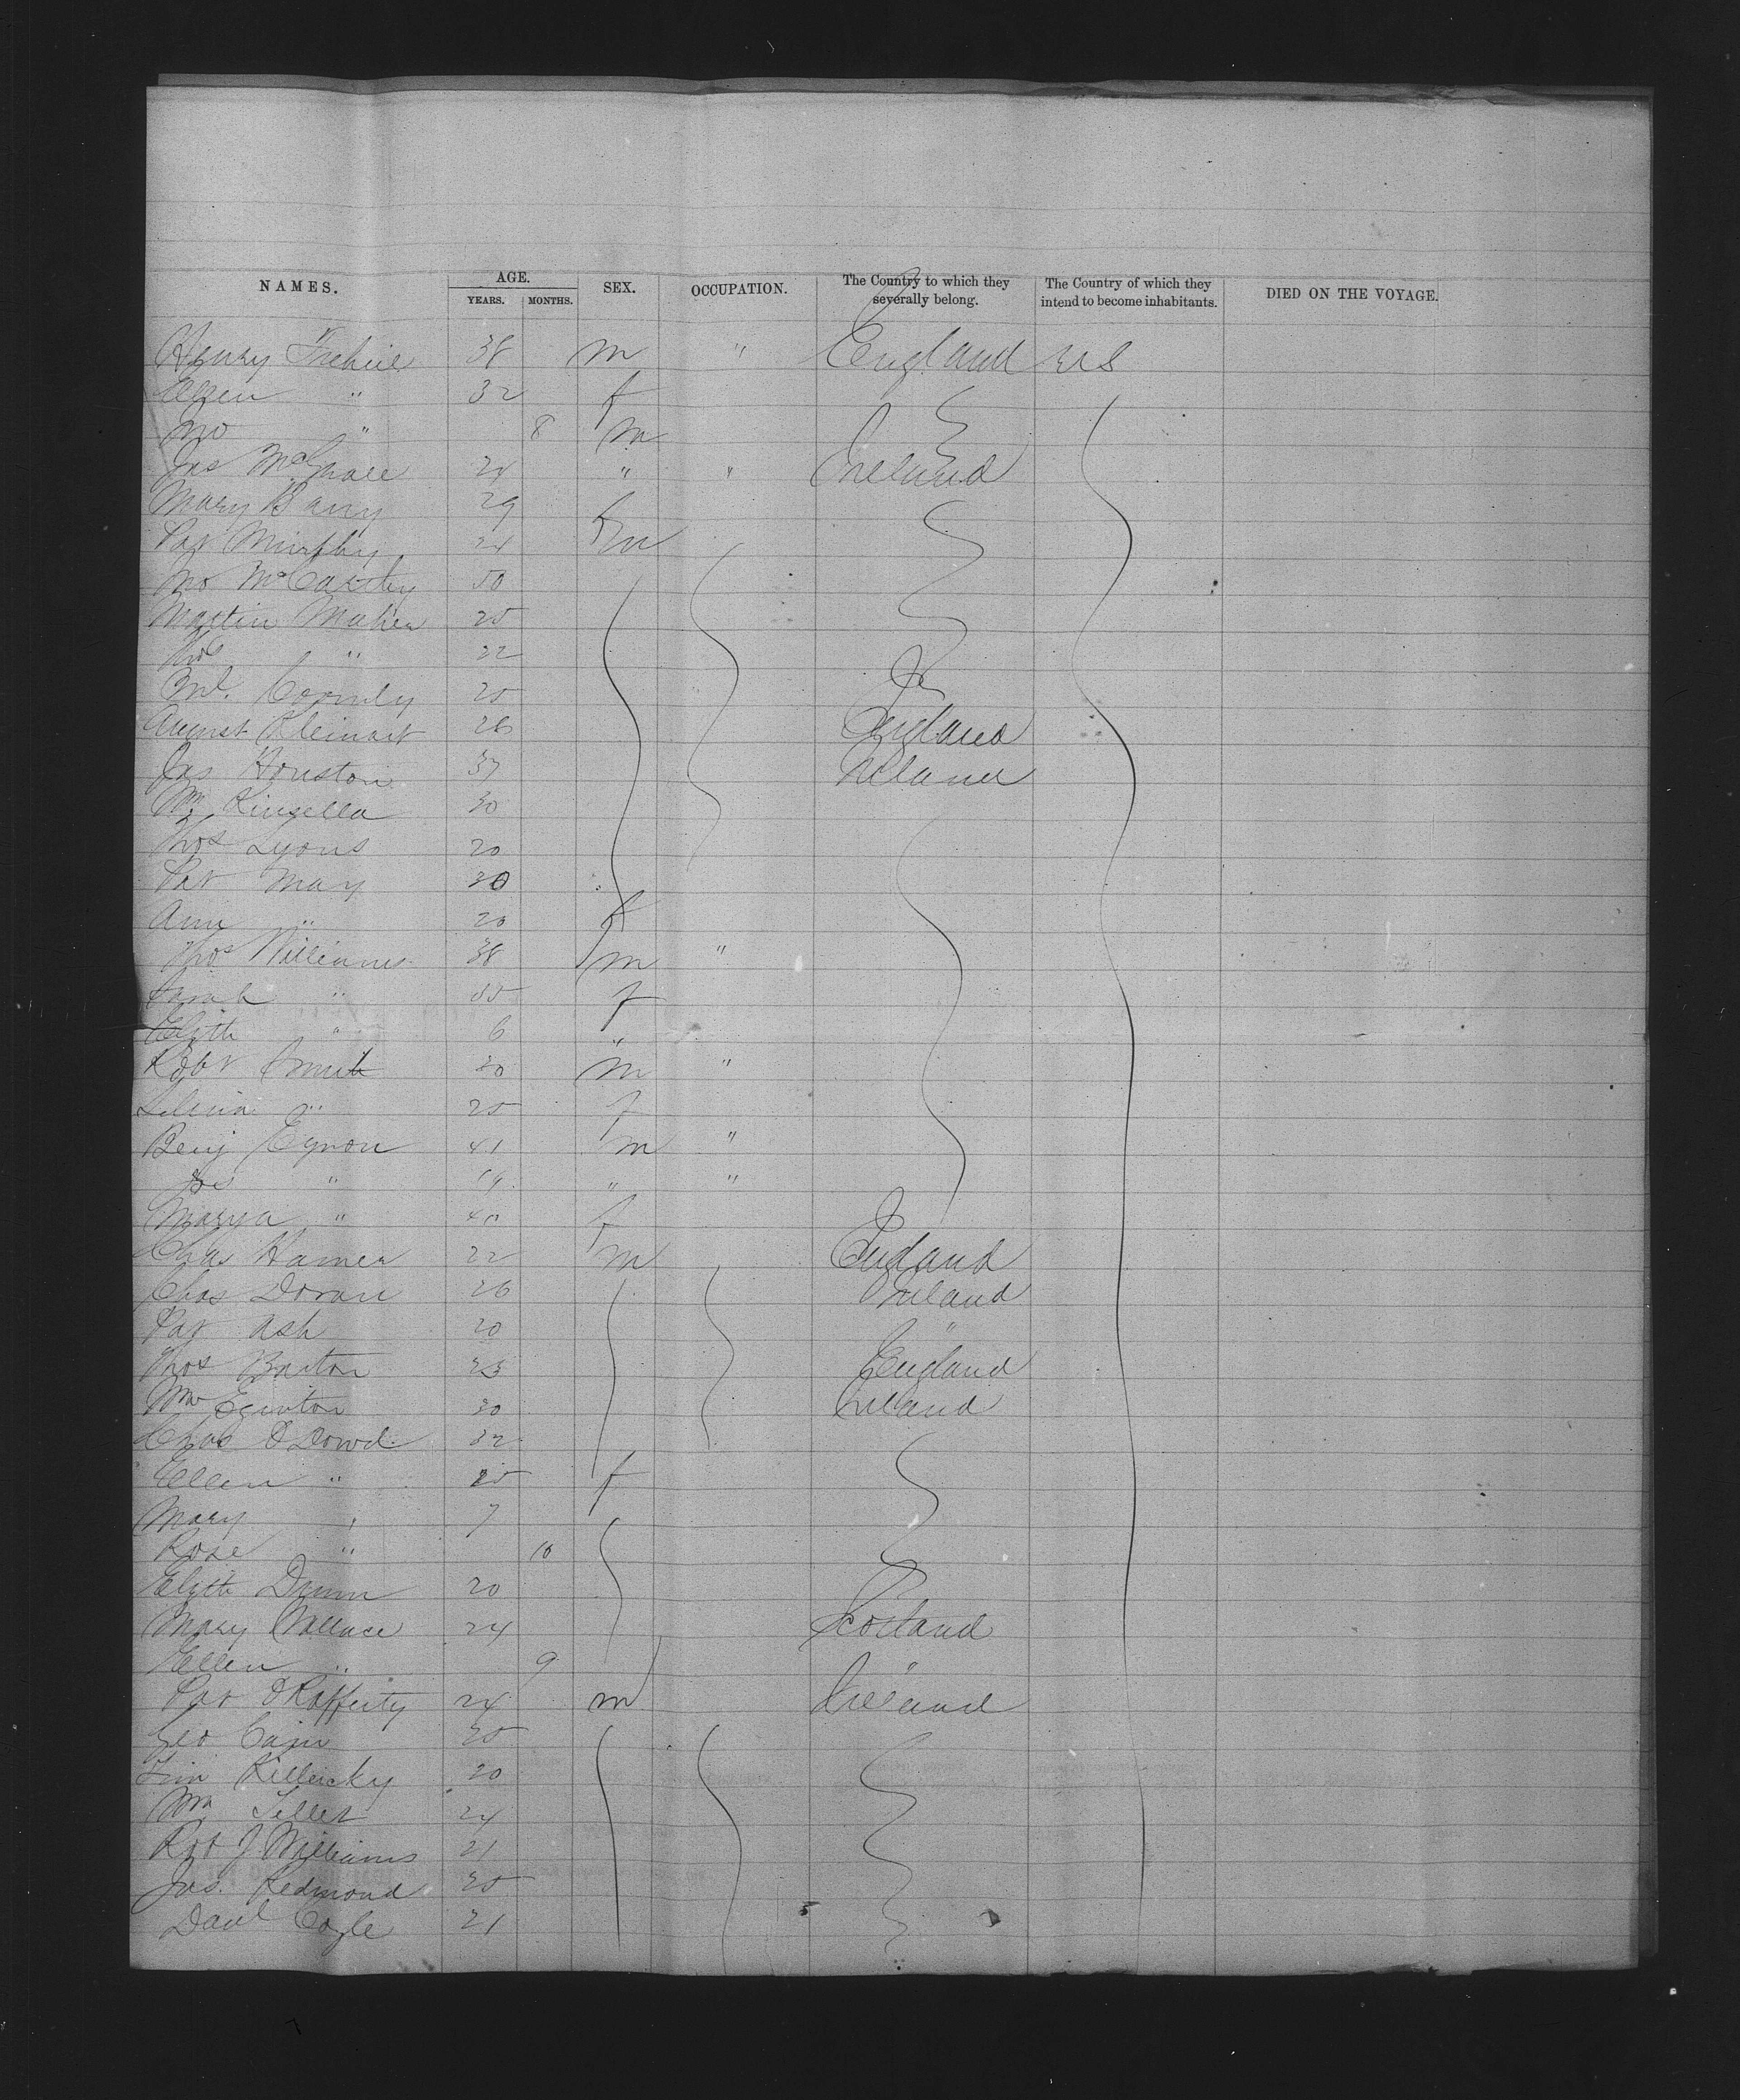 NAMES. AGE. SEX. OCCUPATION. The Country to which they severally belong. The Country of which they intend to become inhabitants. DIED ON THE VOYAGE.
YEARS. MONTHS.
Henry 38 m " England US
Ellen " 32 f
Jno " 8 m
Jas 24 " " Ireland
Mary Barry 29 f
Pat Murphy 24 m
Jno McCarthy 50
Martin Maher 25
Thos " 22
Ml. Cormly 25
August Kleinart 26 England
Jas Houston 37 Ireland
Wm Kinsella 30
Thos Lyons 20
Pat May 30
Ann " 20 f
Thos Williams 38 m "
Sarah " 35 f
Elizth " 6 "
Robt Smith 30 m "
Selina " 25 f
Benj Eynon 41 m "
Jos " 19 " "
Mary a " 40 f
Chas Hamer 22 m England
Chas Doran 26 Ireland
Pat Ash 20 "
Thos Barton 23 England
Wm Eginton 30 Ireland
Chas O Dowd 32
Ellen " 25 f
Mary " 7
Rose " 10
Elizth Dunn 20
Mary Wallace 24 Scotland
Ellen " 9 "
Pat O Rafferty 24 m Ireland
Geo Cain 35
Tim 20
Wm 24
Rot J Williams 21
Jas. Redmond 35
Danl Cogle 21